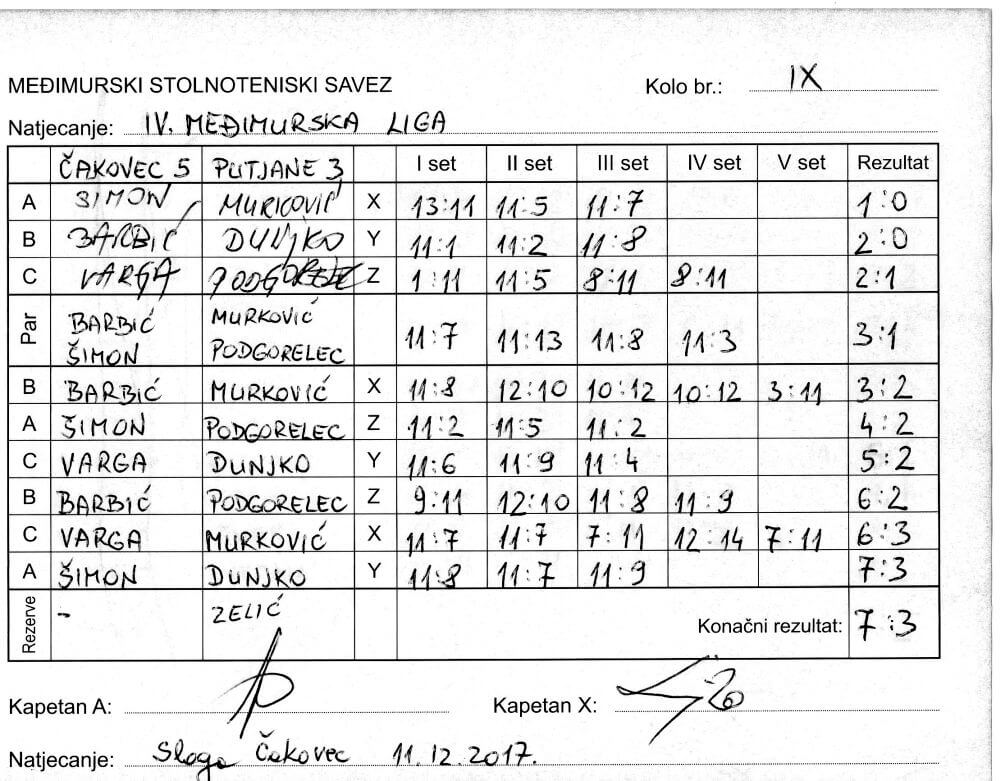 MEĐIMURSKI STOLNOTENISKI SAVEZ Kolo br.: IX
Natjecanje: IV. MEĐIMURSKA LIGA
ČAKOVEC 5 PUTJANE 3 I set II set III set IV set V set Rezultat
A ŠIMON MURKOVIĆ X 13:11 11:5 11:7 1:0
B BARBIĆ DUNJKO Y 11:1 11:2 11:8 2:0
C VARGA PODGORELEC Z 1:11 11:5 8:11 8:11 2:1
Par BARBIĆ ŠIMON MURKOVIĆ PODGORELEC 11:7 11:13 11:8 11:3 3:1
B BARBIĆ MURKOVIĆ X 11:8 12:10 10:12 10:12 3:11 3:2
A ŠIMON PODGORELEC Z 11:2 11:5 11:2 4:2
C VARGA DUNJKO Y 11:6 11:9 11:4 5:2
B BARBIĆ PODGORELEC Z 9:11 12:10 11:8 11:9 6:2
C VARGA MURKOVIĆ X 11:7 11:7 7:11 12:14 7:11 6:3
A ŠIMON DUNJKO Y 11:8 11:7 11:9 7:3
Rezerve - ZELIĆ Konačni rezultat: 7:3
Kapetan A: Kapetan X:
Natjecanje: Sloga Čakovec 11.12.2017.